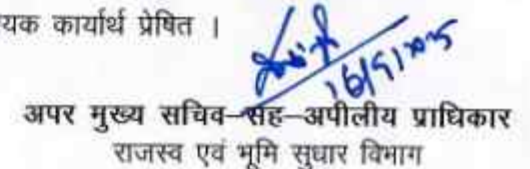 यक कार्यार्थ प्रेषित ।
अपर मुख्य सचिव–सह–अपीलीय प्राधिकार
राजस्व एवं भूमि सुधार विभाग